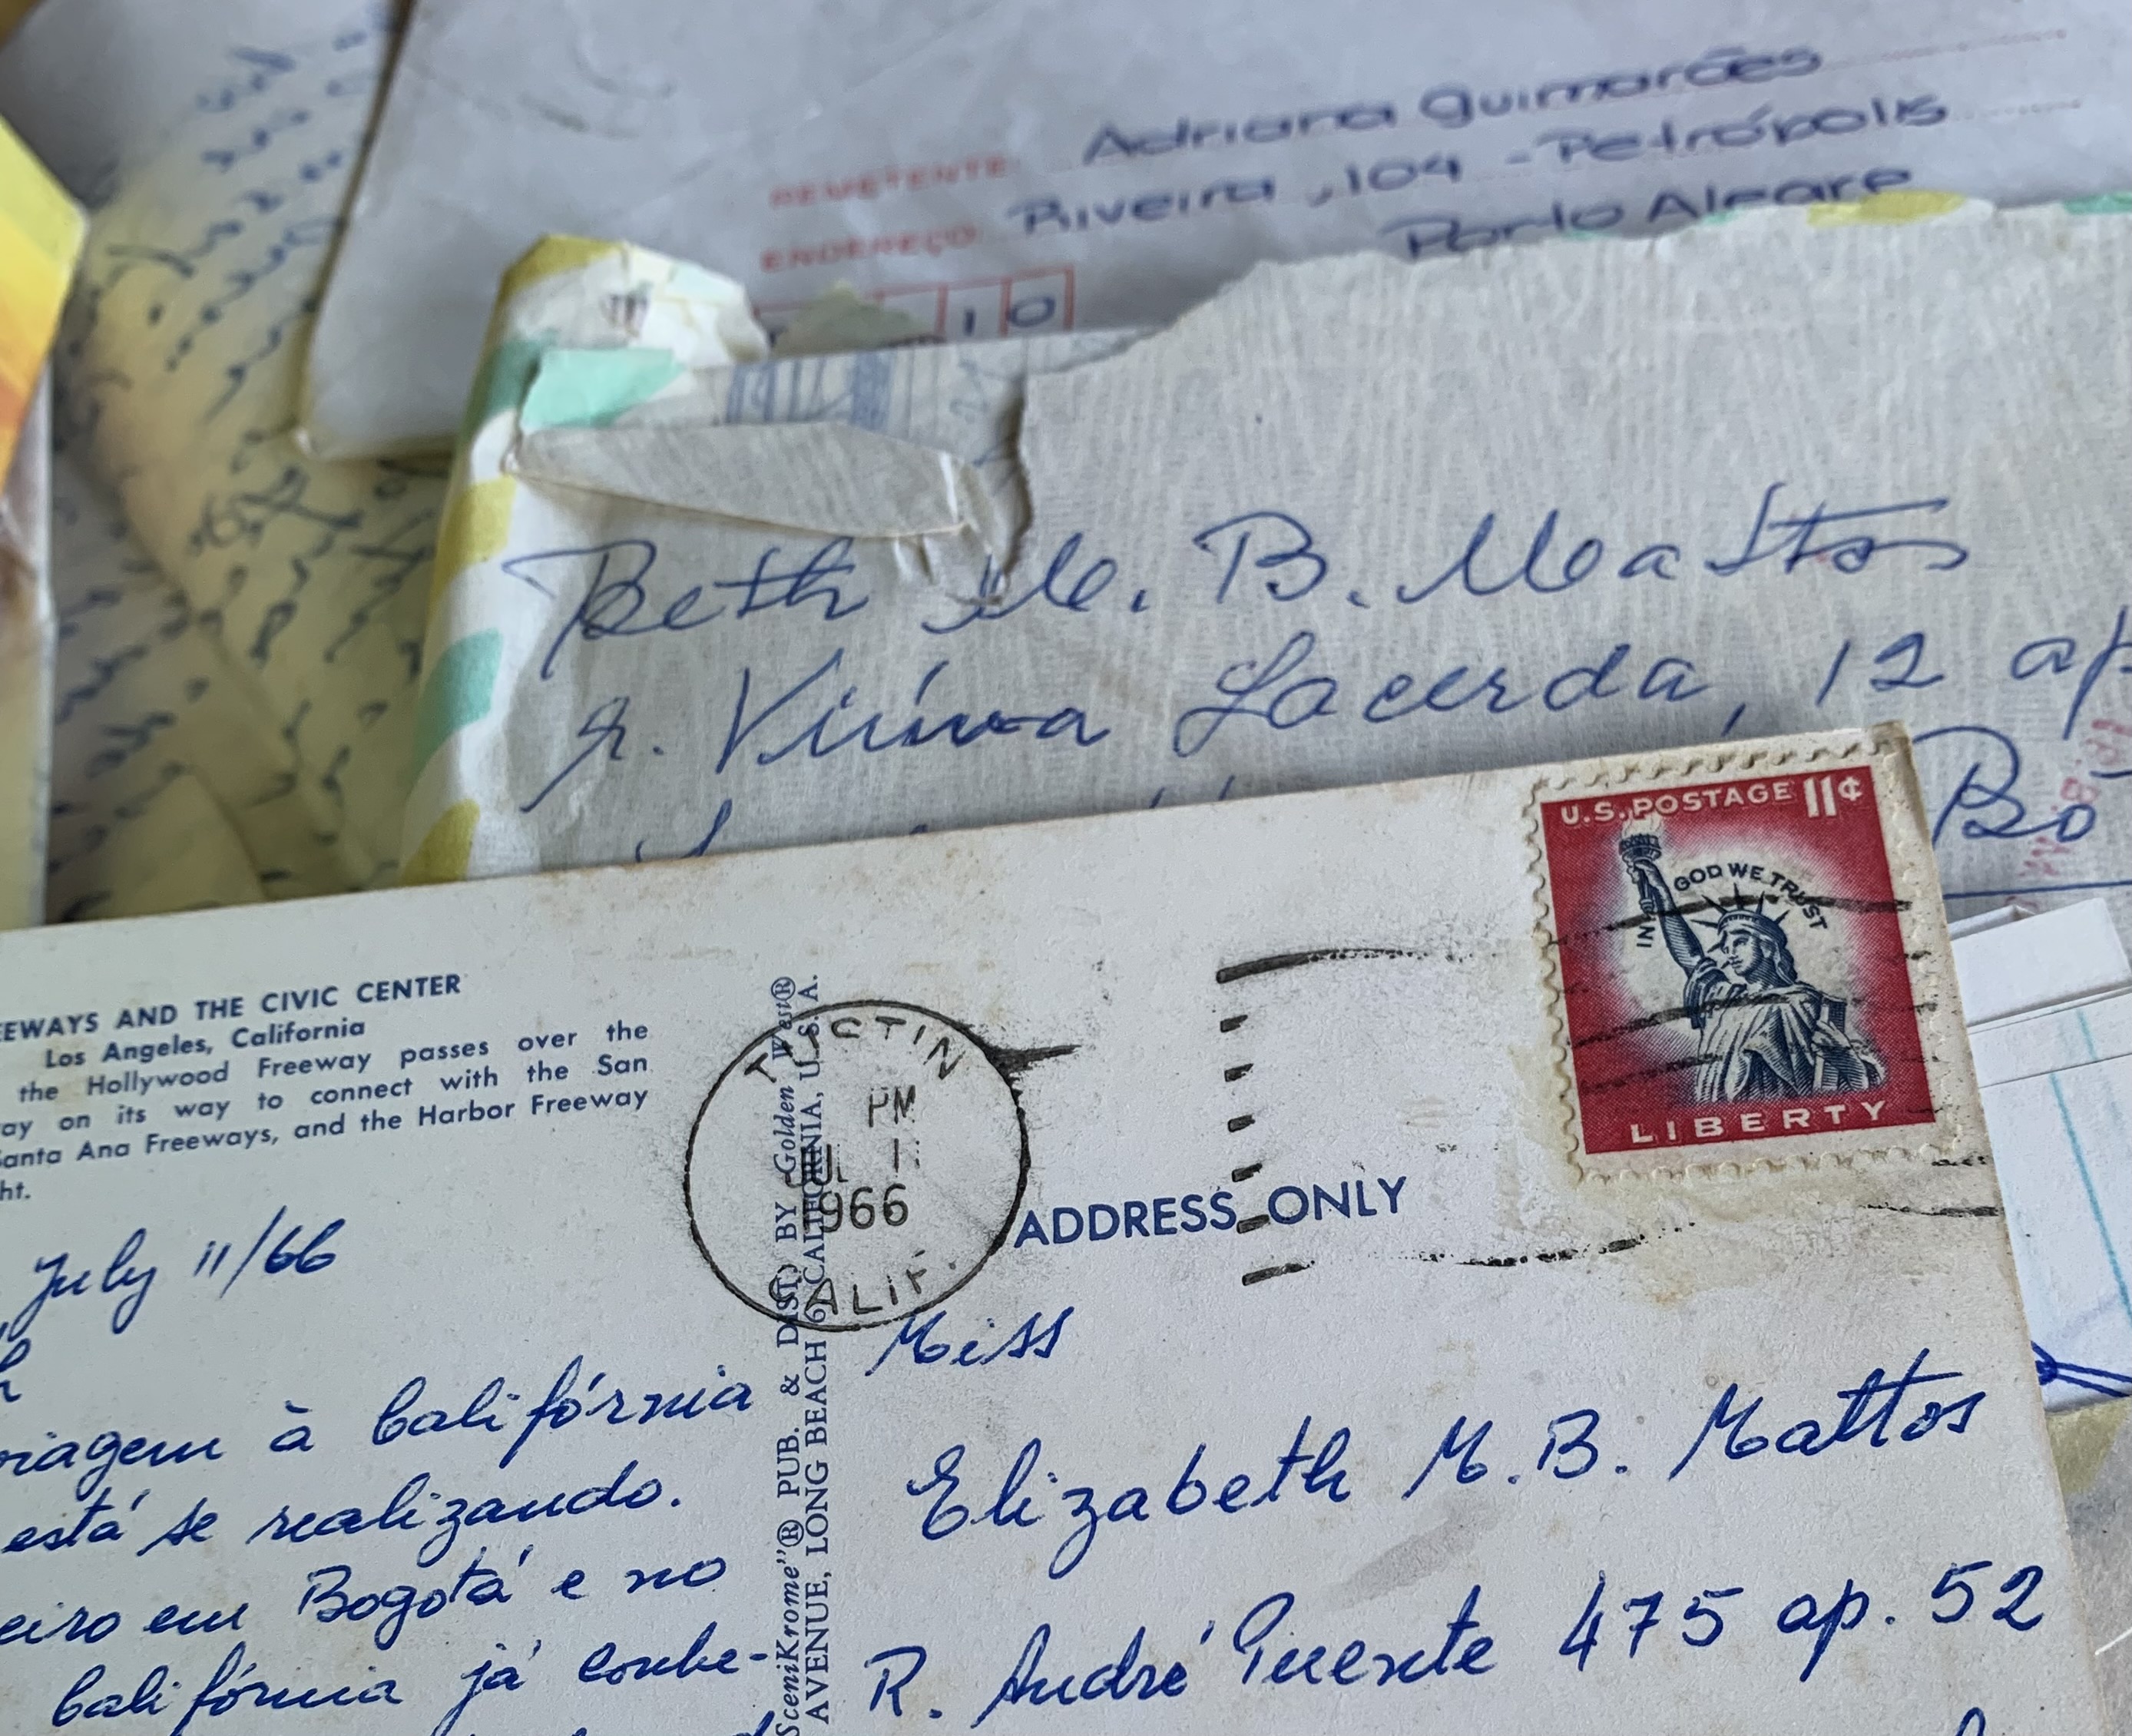 Adriana Guimarães
REMETENTE:
Riveira, 104 - Petrópolis
ENDEREÇO:
Porto Alegre
1 0
Beth M. B. Mattos
r. Viúva Lacerda, 12 ap
Bo
U.S. POSTAGE 11¢
IN GOD WE TRUST
LIBERTY
EEWAYS AND THE CIVIC CENTER
Los Angeles, California
the Hollywood Freeway passes over the
ay on its way to connect with the San
Santa Ana Freeways, and the Harbor Freeway
ht.
TUSTIN
PM
JUL 11
1966
CALIF.
SceniKrome"® PUB. & DIST. BY Golden West®
AVENUE, LONG BEACH 6, CALIFORNIA, U.S.A.
ADDRESS ONLY
July 11/66
viagem à Califórnia
está se realizando.
eiro em Bogotá e no
Califórnia já conhe-
Miss
Elizabeth M. B. Mattos
R. André Puente 475 ap. 52